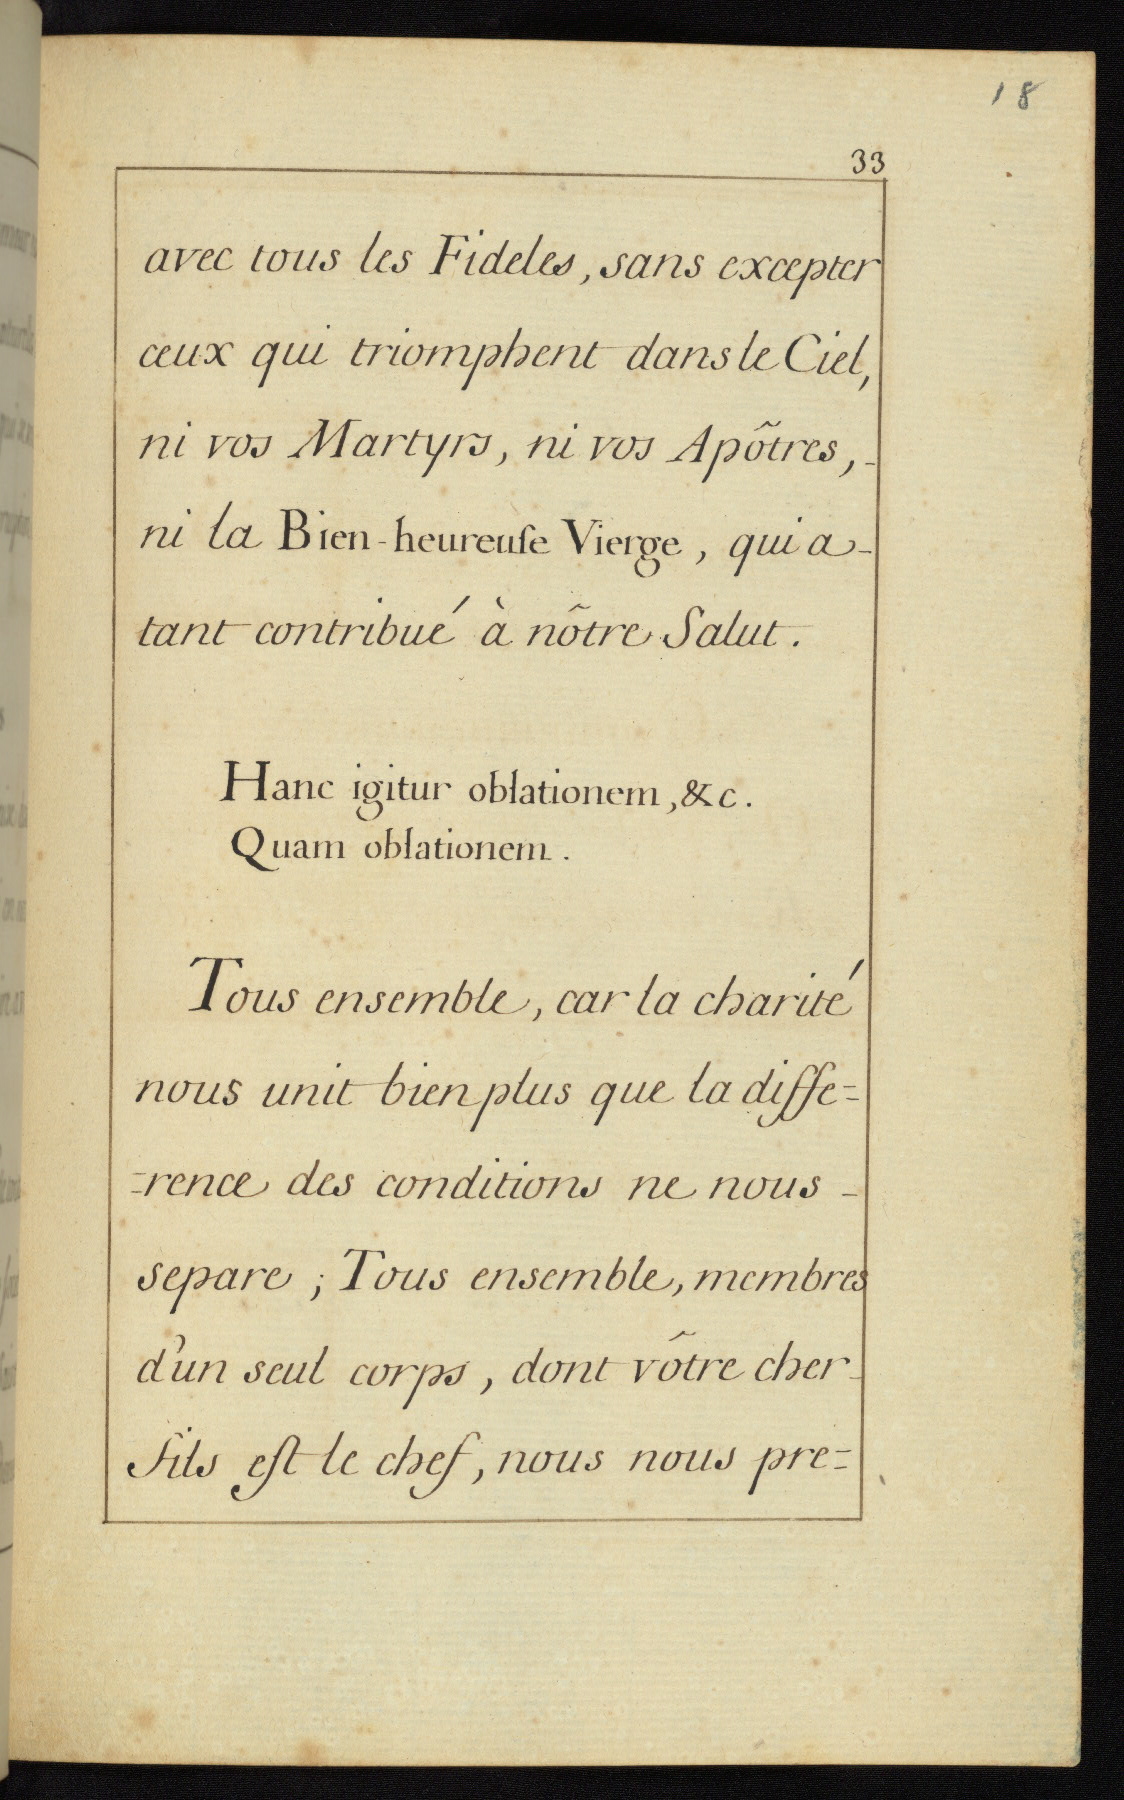 18
33
avec tous les Fideles, sans excepter
ceux qui triomphent dans le Ciel,
ni vos Martyrs, ni vos Apôtres, -
ni la Bien-heureuſe Vierge, qui a -
tant contribué à nôtre Salut.
Hanc igitur oblationem, &c.
Quam oblationem.
Tous ensemble, car la charité
nous unit bien plus que la diffe=
=rence des conditions ne nous -
separe ; Tous ensemble, membres
d'un seul corps, dont vôtre cher -
Fils eſt le chef, nous nous pre=